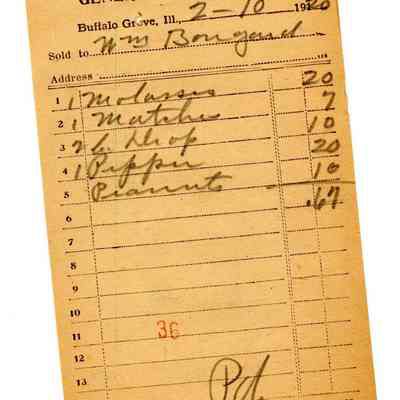 GENE
Buffalo Grove, Ill., 2-10 1920
Sold to Wm Bongard
Address
1 1 Molasses 20
2 1 Matches 7
3 2 C Drop 10
4 1 Pepper 20
5 Peanuts 10
6 .67
7
8
9
10
11 36
12
13 Pd